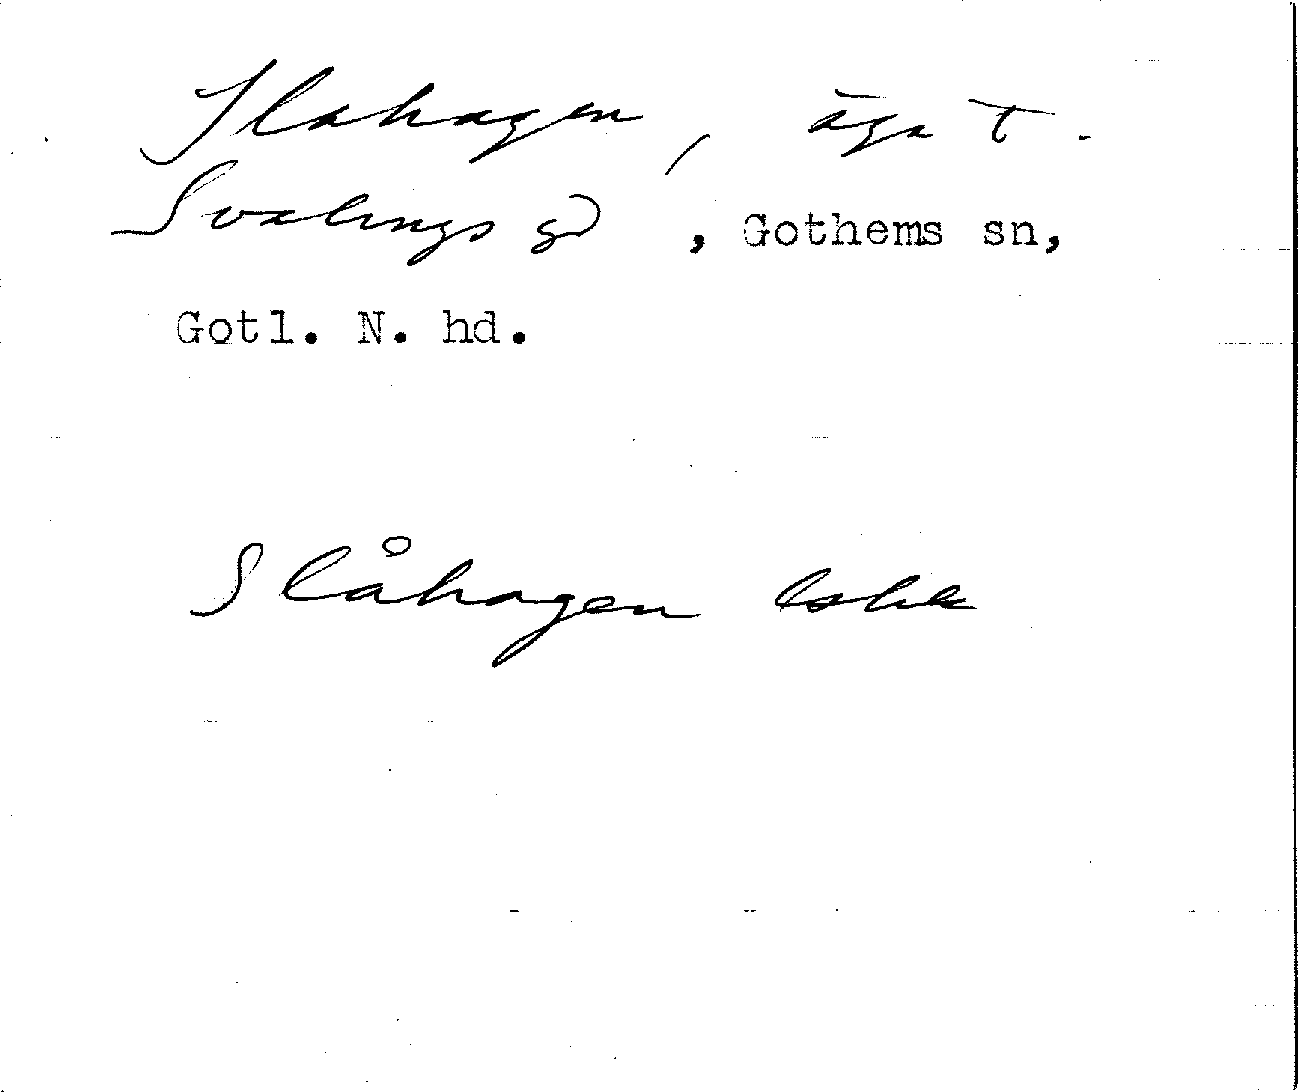 Slahagen, äga t.
Svalings gd, Gothems sn,
Gotl. N. hd.
Slåhagen lshk